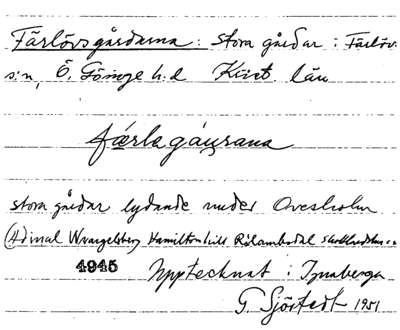 Färlövsgårdarna: stora gårdar i Färlövs
s:n, Ö. Göinge h:d Krist. län
färlagáu̥rana
stora gårdar lydande under Ovesholm
(Adinal Wrangelsberg Hamiltonhill Rålambsdal
4945 Upptecknat i Ignaberga
G. Sjöstedt 1951